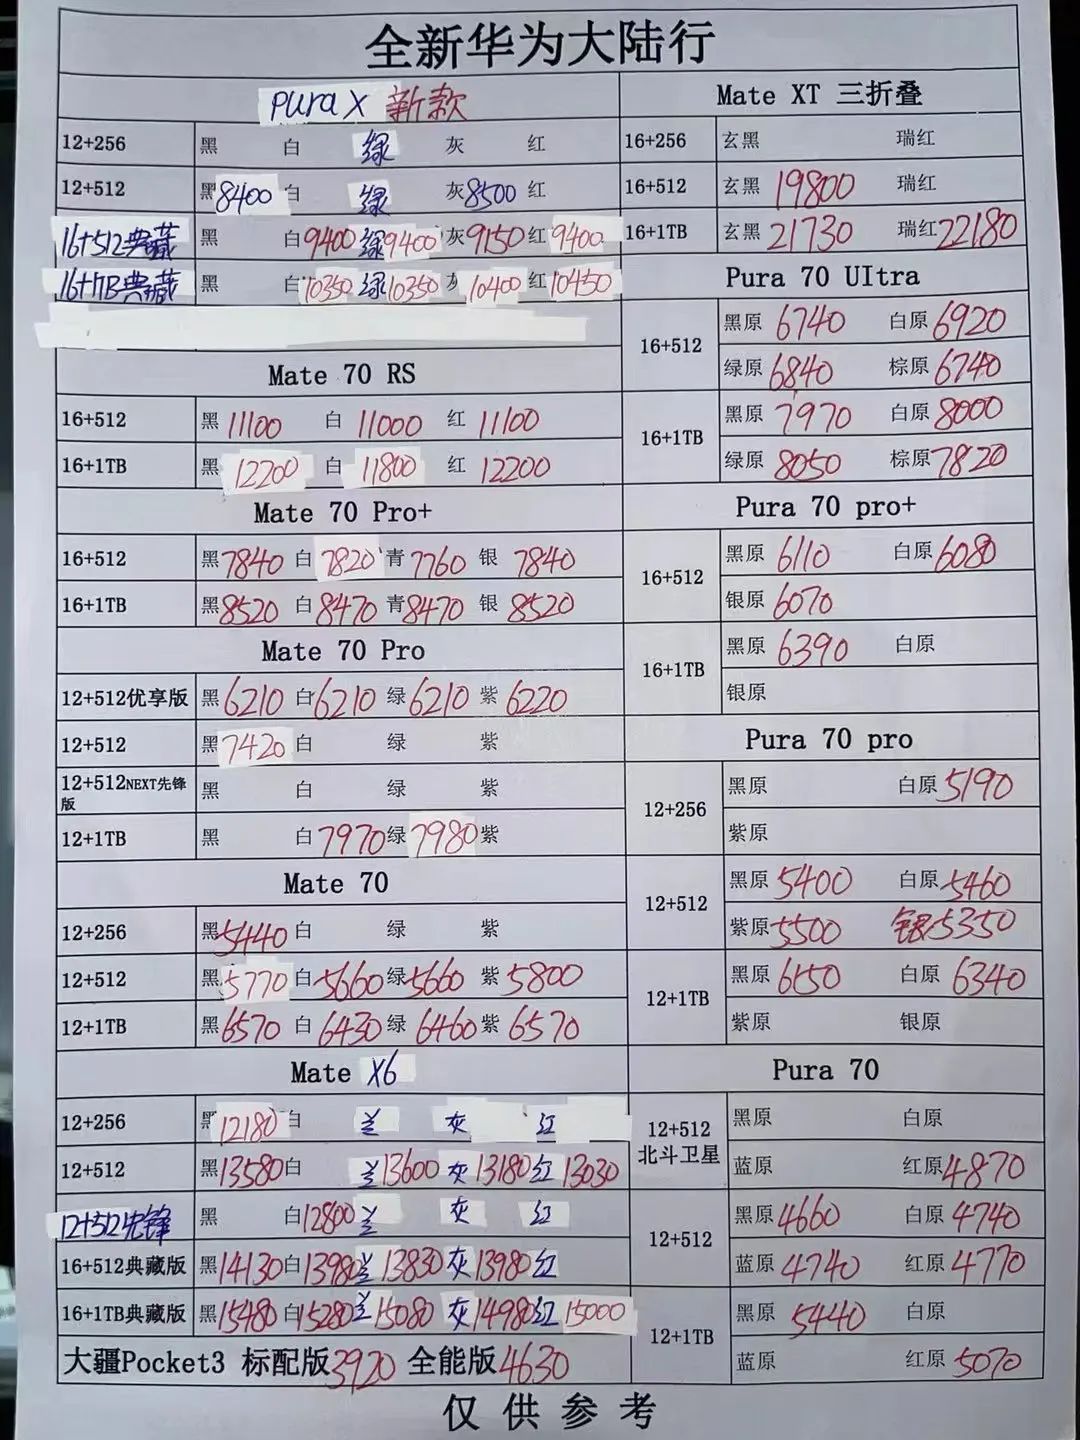 全新华为大陆行
pura X 新款
12+256 黑 白 绿 灰 红
12+512 黑8400 白 绿 灰8500 红
16+512典藏 黑 白9400 绿9400 灰9150 红9400
16+1TB典藏 黑 白10350 绿10350 10400 红10450
Mate 70 RS
16+512 黑 11100 白 11000 红 11100
16+1TB 黑 12200 白 11800 红 12200
Mate 70 Pro+
16+512 黑7840 白7820 青7760 银 7840
16+1TB 黑8520 白8470 青8470 银 8520
Mate 70 Pro
12+512优享版 黑6210 白6210 绿6210 紫 6220
12+512 黑7420 白 绿 紫
12+512NEXT先锋版 黑 白 绿 紫
12+1TB 黑 白7970 绿7980 紫
Mate 70
12+256 黑5440 白 绿 紫
12+512 黑5770 白5660 绿5660 紫5800
12+1TB 黑6570 白6430 绿6460 紫6570
Mate X6
12+256 黑12180 白 兰 灰 红
12+512 黑13580 白 兰13600 灰13180 红13030
12+512先锋 黑 白12800 兰 灰 红
16+512典藏版 黑14130 白13980 兰13830 灰13980 红
16+1TB典藏版 黑15480 白15280 兰15080 灰14980 红15000
大疆Pocket3 标配版3920 全能版4630
Mate XT 三折叠
16+256 玄黑 瑞红
16+512 玄黑 19800 瑞红
16+1TB 玄黑 21730 瑞红22180
Pura 70 UItra
16+512
黑原 6740 白原 6920
绿原 6840 棕原 6740
16+1TB
黑原 7970 白原 8000
绿原 8050 棕原 7820
Pura 70 pro+
16+512
黑原 6110 白原6080
银原 6070
16+1TB
黑原 6390 白原
银原
Pura 70 pro
12+256
黑原 白原 5190
紫原
12+512
黑原5400 白原5460
紫原5500 银5350
12+1TB
黑原 6150 白原 6340
紫原 银原
Pura 70
12+512
北斗卫星
黑原 白原
蓝原 红原4870
12+512
黑原4660 白原 4740
蓝原 4740 红原 4770
12+1TB
黑原 5440 白原
蓝原 红原 5070
仅供参考